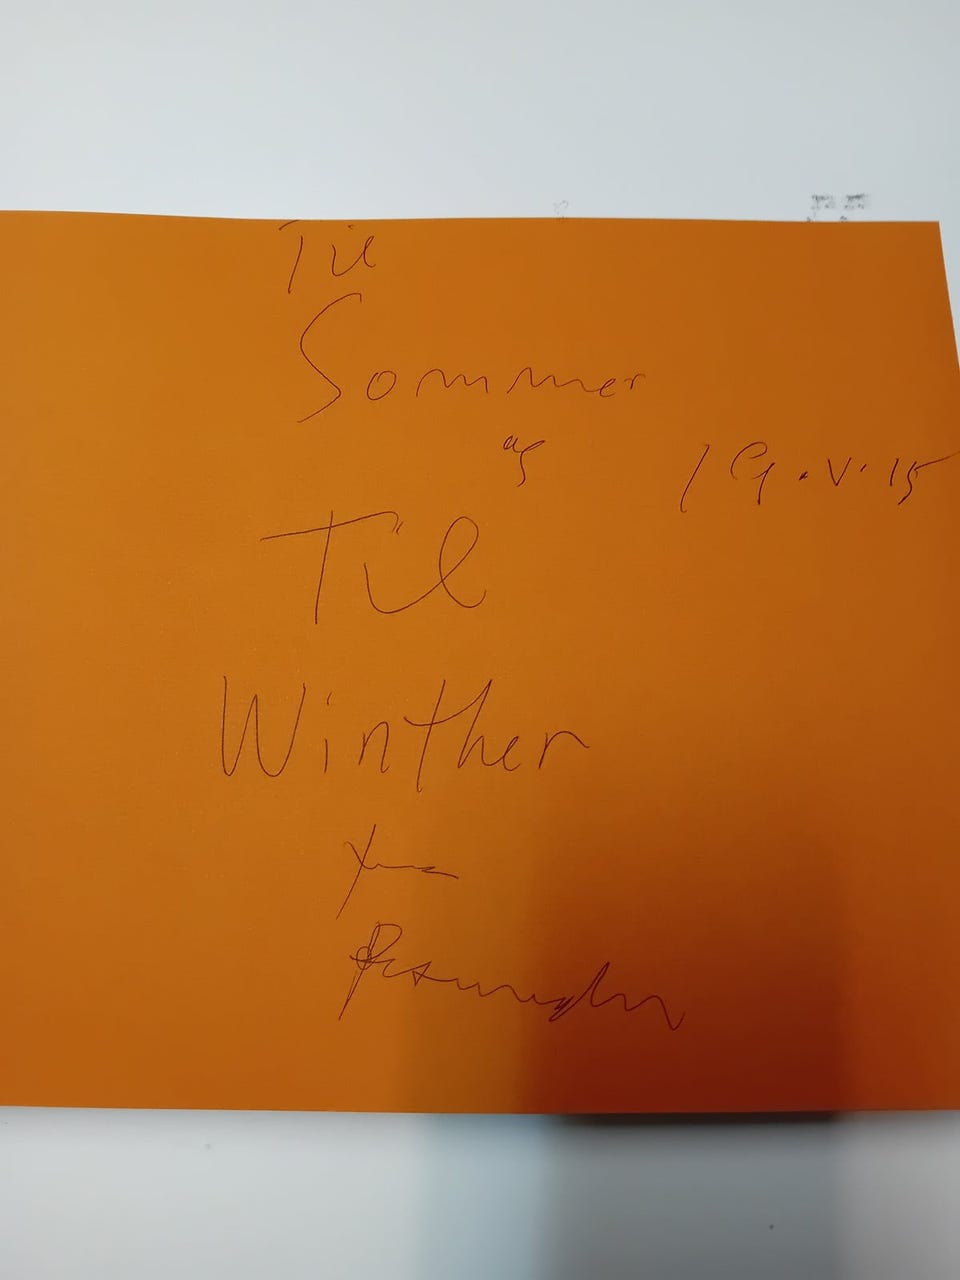 Til
Sommer
og
19.V.15
Til
Winther